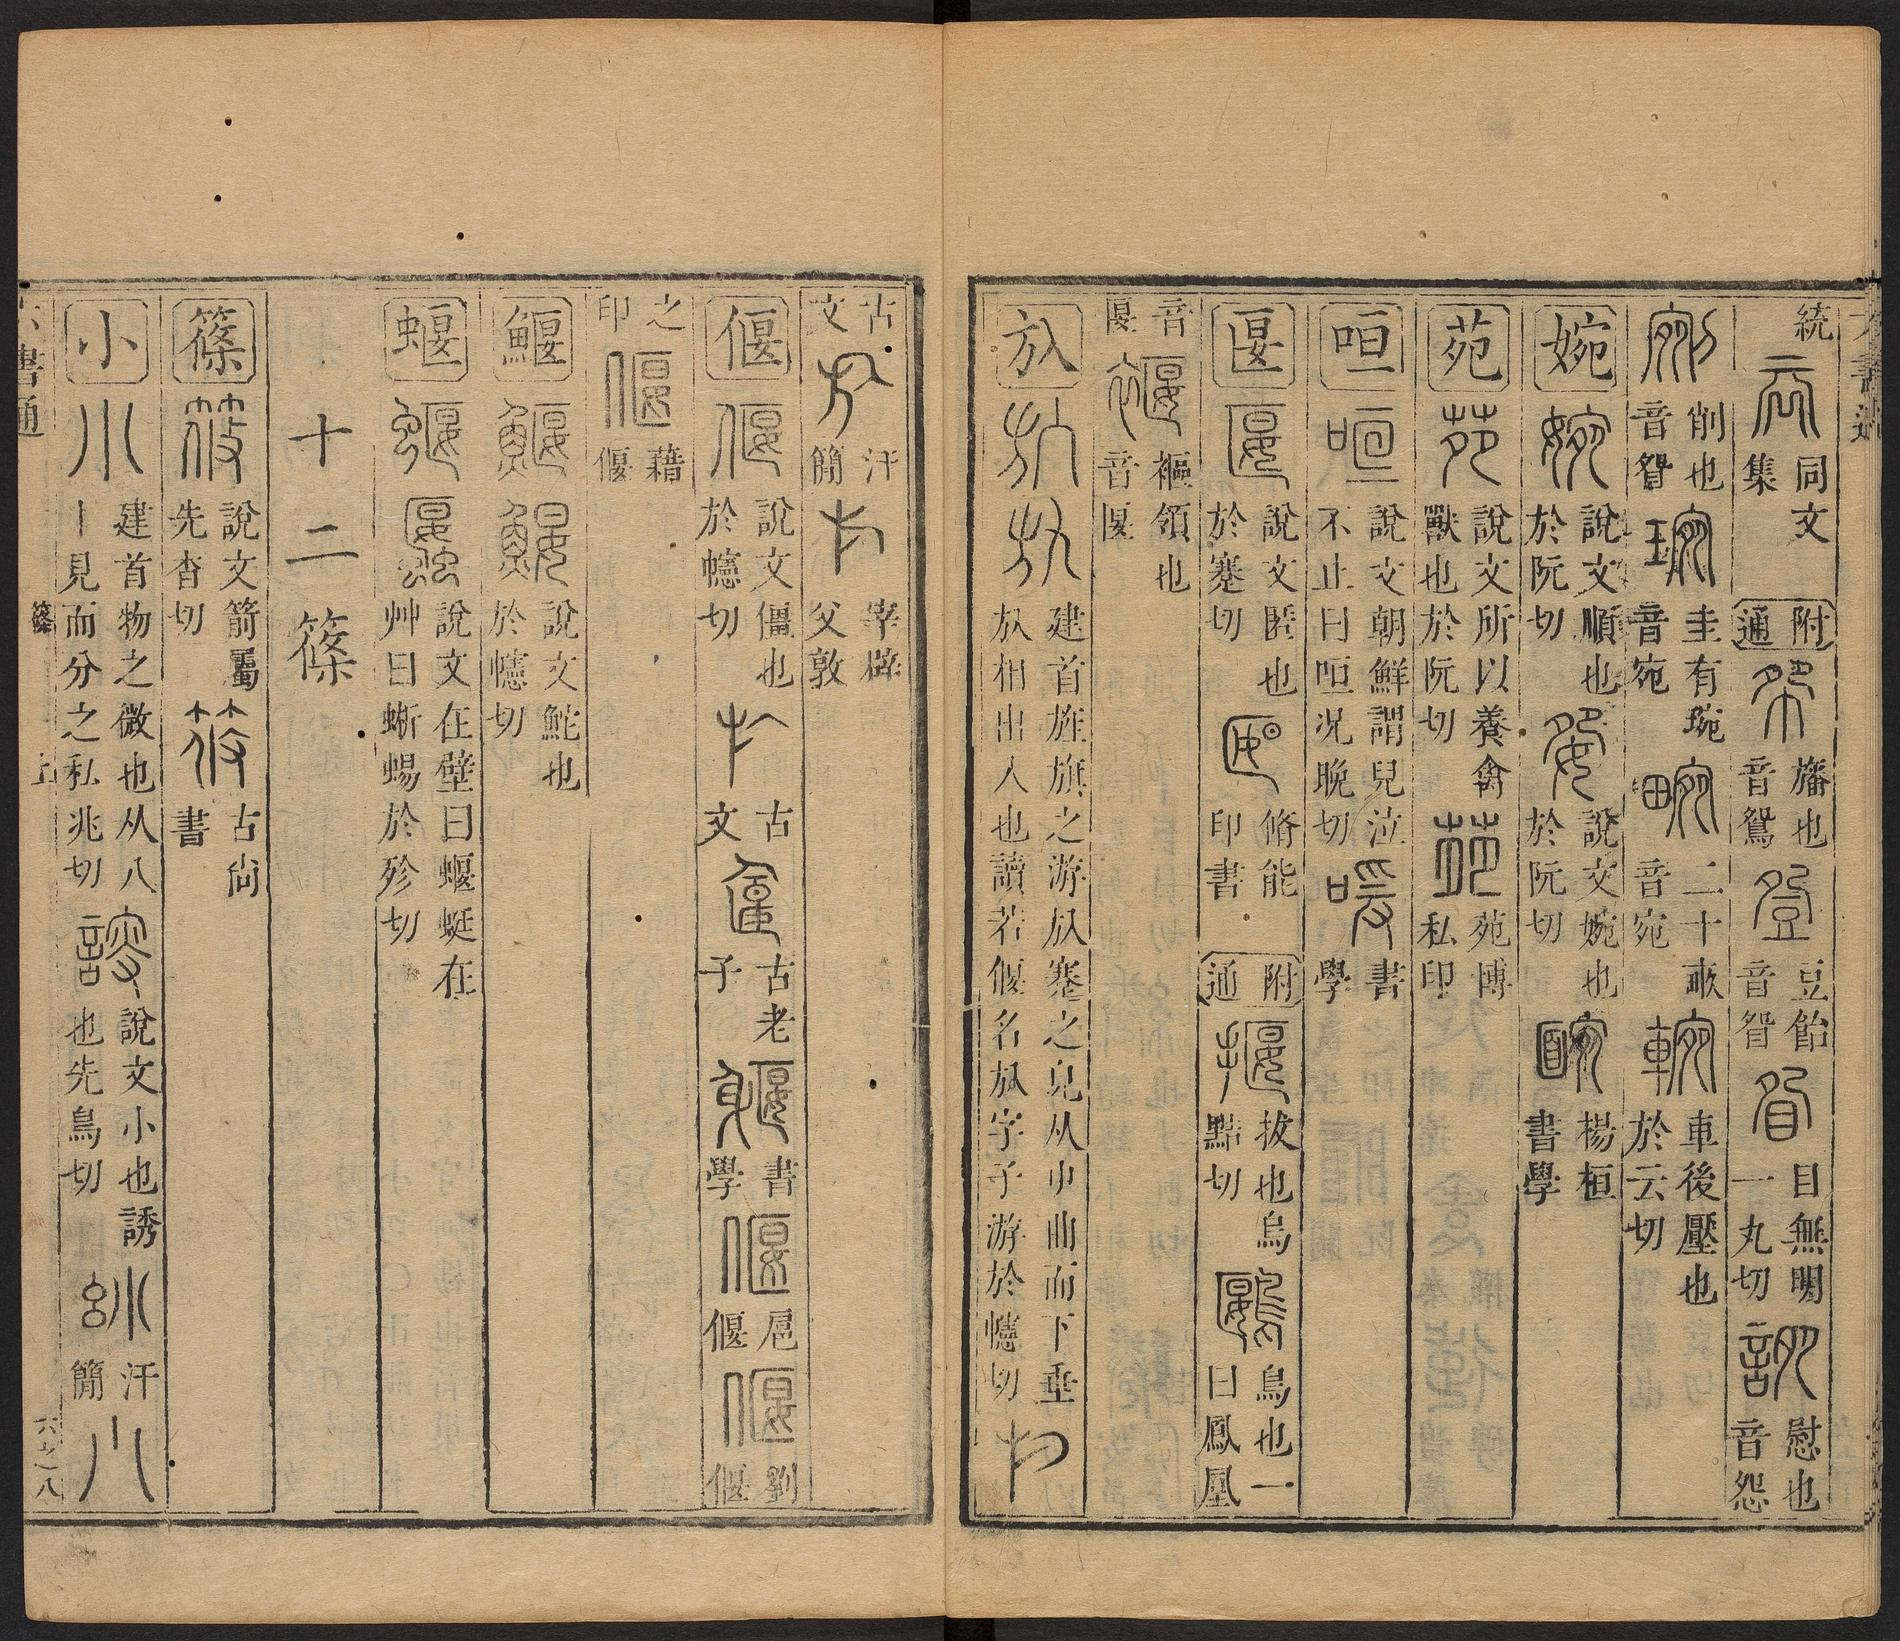 統 同文集 附通 旛也音鴛 豆飴音眢 目無明一丸切 慰也音怨
削也音眢 圭有琬音宛 二十畝音宛 車後壓也於云切
婉 說文順也於阮切 說文婉也於阮切 楊桓書學
苑 說文所以養禽獸也於阮切 苑博私印
咺 說文朝鮮謂兒泣不止曰咺况晚切 書學
匽 說文匿也於蹇切 脩能印書 附通 拔也烏黠切 鳥也一曰鳳凰
音匽 褗領也音匽
㫃 建首旌旗之游㫃蹇之皃从屮曲而下垂㫃相出入也讀若偃名㫃字子游於幰切
古文 汗簡 宰辟父敦
偃 說文僵也於幰切 古文 古老子 書學 扈偃 劉偃
之印 藉偃
鰋 說文鮀也於幰切
蝘 說文在壁曰蝘蜓在艸曰蜥蜴於殄切
十二篠
篠 說文箭屬先杳切 古尙書
小 建首物之微也从八丨見而分之私兆切 說文小也誘也先鳥切 汗簡
六書通 篠 上 六之八